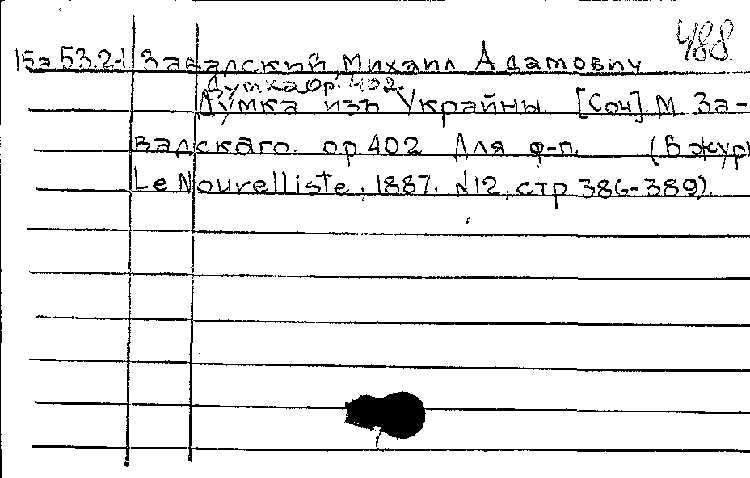 488
15а 53.2-1 Завадский, Михаил Адамович
Думка ор. 402.
Думка изъ Украйны [Соч] М. За-
вадскаго. ор 402 Для ф-п. (В журн
Le Nouvelliste, 1887. N12, стр 386-389).